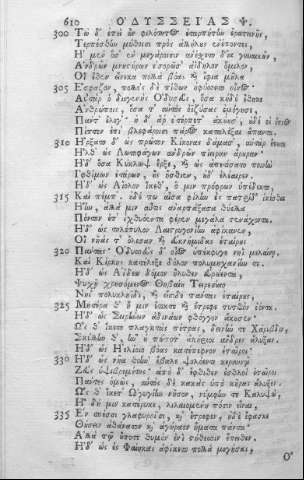 610 ὈΔΥΣΣΕΙΑΣ Ψ.
300 Τὼ δ' ἐπεὶ ὖν φιλότητος ἐταρπήτην ἐρατεινῆς,
Τερπέσθην μύθοισι πρὸς ἀλλήλους ἐνέποντες,
Ἡ μὲν ὅσ' ἐν μεγάροισιν ἀνέσχετο δῖα γυναικῶν,
Ἀνδρῶν μνηστήρων ἐσορῶσ' ἀΐδηλον ὅμιλον,
Οἳ ἕθεν εἵνεκα πολλὰ βόας ἢ ἴφια μῆλα
305 Ἔσφαζον, πολλὸς δὲ πίθων ἠφύσσετο οἶνος
Αὐτὰρ ὁ διογενὴς Ὀδυσεὺς, ὅσα κήδε' ἔθηκε
Ἀνθρώποις, ὅσα τ' αὐτὸς ὀϊζύσας ἐμόγησε,
Πάντ' ἔλεγ'· ἡ δ' ἄρ' ἐτέρπετ' ἀκούουσ', ὐδέ οἱ ὕπνος
Πίπτεν ἐπὶ βλεφάροισι πάρος καταλέξαι ἅπαντα.
310 Ἤρξατο δ' ὡς πρῶτον Κίκονας δάμασ', αὐτὰρ ἔπειτα
Ἦλθ' ἐς Λωτοφάγων ἀνδρῶν πίειραν ἄρουραν·
Ἠδ' ὅσα Κύκλωψ ἔρξε, ἢ ὡς ἀπετίσατο ποινὴν
Ἰφθίμων ἑτάρων, ὓς ἤσθιεν, ὐδ' ἐλέαιρεν·
Ἠδ' ὡς Αἴολον ἵκεθ', ὅ μιν πρόφρων ὑπέδεκτο,
315 Καὶ πέμπ'· ὐδέ πω αἶσα φίλην ἐς πατρίδ' ἱκέσθαι
Ἤην, ἀλλά μιν αὖθις ἀναρπάξασα θύελλα
Πόντον ἐπ' ἰχθυόεντα φέρεν μεγάλα στενάχοντα·
Ἠδ' ὡς τηλέπυλον Λαιστρυγονίην ἀφίκανεν,
Οἳ νῆάς τ' ὄλεσαν ἢ ἐϋκνήμιδας ἑταίρους
320 Πάντας· Ὀδυσσεὺς δ' οἶος ὑπέκφυγε νηῒ μελαίνῃ.
Καὶ Κίρκης κατέλεξε δόλον πολυμηχανίην τε.
Ἠδ' ὡς εἰς Ἀΐδεω δόμον ἤλυθεν εὐρώεντα,
Ψυχῇ χρησόμενος Θηβαίου Τειρεσίαο
Νηῒ πολυκληΐδι, ἢ εἴσιδε πάντας ἑταίρους,
325 Μητέρα θ' ἥ μιν ἔτικτε ἢ ἔτρεφε τυτθὸν ἐόντα.
Ἠδ' ὡς Σειρήνων ἀδινάων φθόγγον ἄκουσεν·
Ὥς θ' ἵκετο πλαγκτὰς πέτρας, δεινήν τε Χάρυβδιν,
Σκύλλην θ', ἣν ὔ πώποτ' ἀκήριοι ἄνδρες ἄλυξαν.
Ἠδ' ὡς Ἠελίοιο βόας κατέπεφνον ἑταῖροι·
330 Ἠδ' ὡς νῆα θοὴν ἔβαλε ψολόεντι κεραυνῷ
Ζεὺς ὑψιβρεμέτης· ἀπὸ δ' ἔφθιθεν ἐσθλοὶ ἑταῖροι
Πάντες ὁμῶς, αὐτὸς δὲ κακὰς ὑπὸ κῆρας ἄλυξεν.
Ὥς θ' ἵκετ' Ὠγυγίην νῆσον, νύμφην τε Καλυψὼ,
Ἣ δή μιν κατέρυκε, λιλαιομένη πόσιν εἶναι,
335 Ἐν σπέσσι γλαφυροῖσι, ἢ ἔτρεφεν, ἠδὲ ἔφασκε
Θήσειν ἀθάνατον ἢ ἀγήραον ἤματα πάντα·
Ἀλλὰ τῷ ὔποτε θυμὸν ἐνὶ στήθεσσιν ἔπειθεν.
Ἠδ' ὡς ἐς Φαίηκας ἀφίκετο πολλὰ μογήσας,
Οἳ